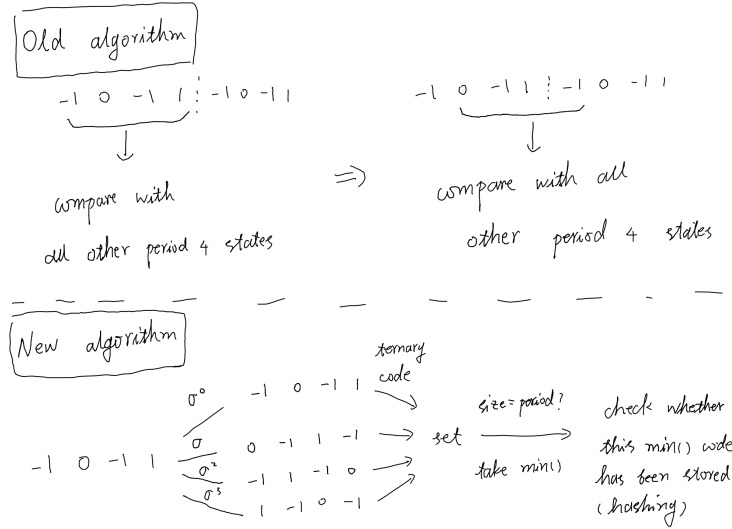 Old algorithm
-1 0 -1 1 -1 0 -1 1
compare with
all other period 4 states
⇒
-1 0 -1 1 -1 0 -1 1
compare with all
other period 4 states
New algorithm
-1 0 -1 1
σ⁰ -1 0 -1 1
σ 0 -1 1 -1
σ² -1 1 -1 0
σ³ 1 -1 0 -1
ternary
code
set
size=period?
take min()
check whether
this min() code
has been stored
(hashing)